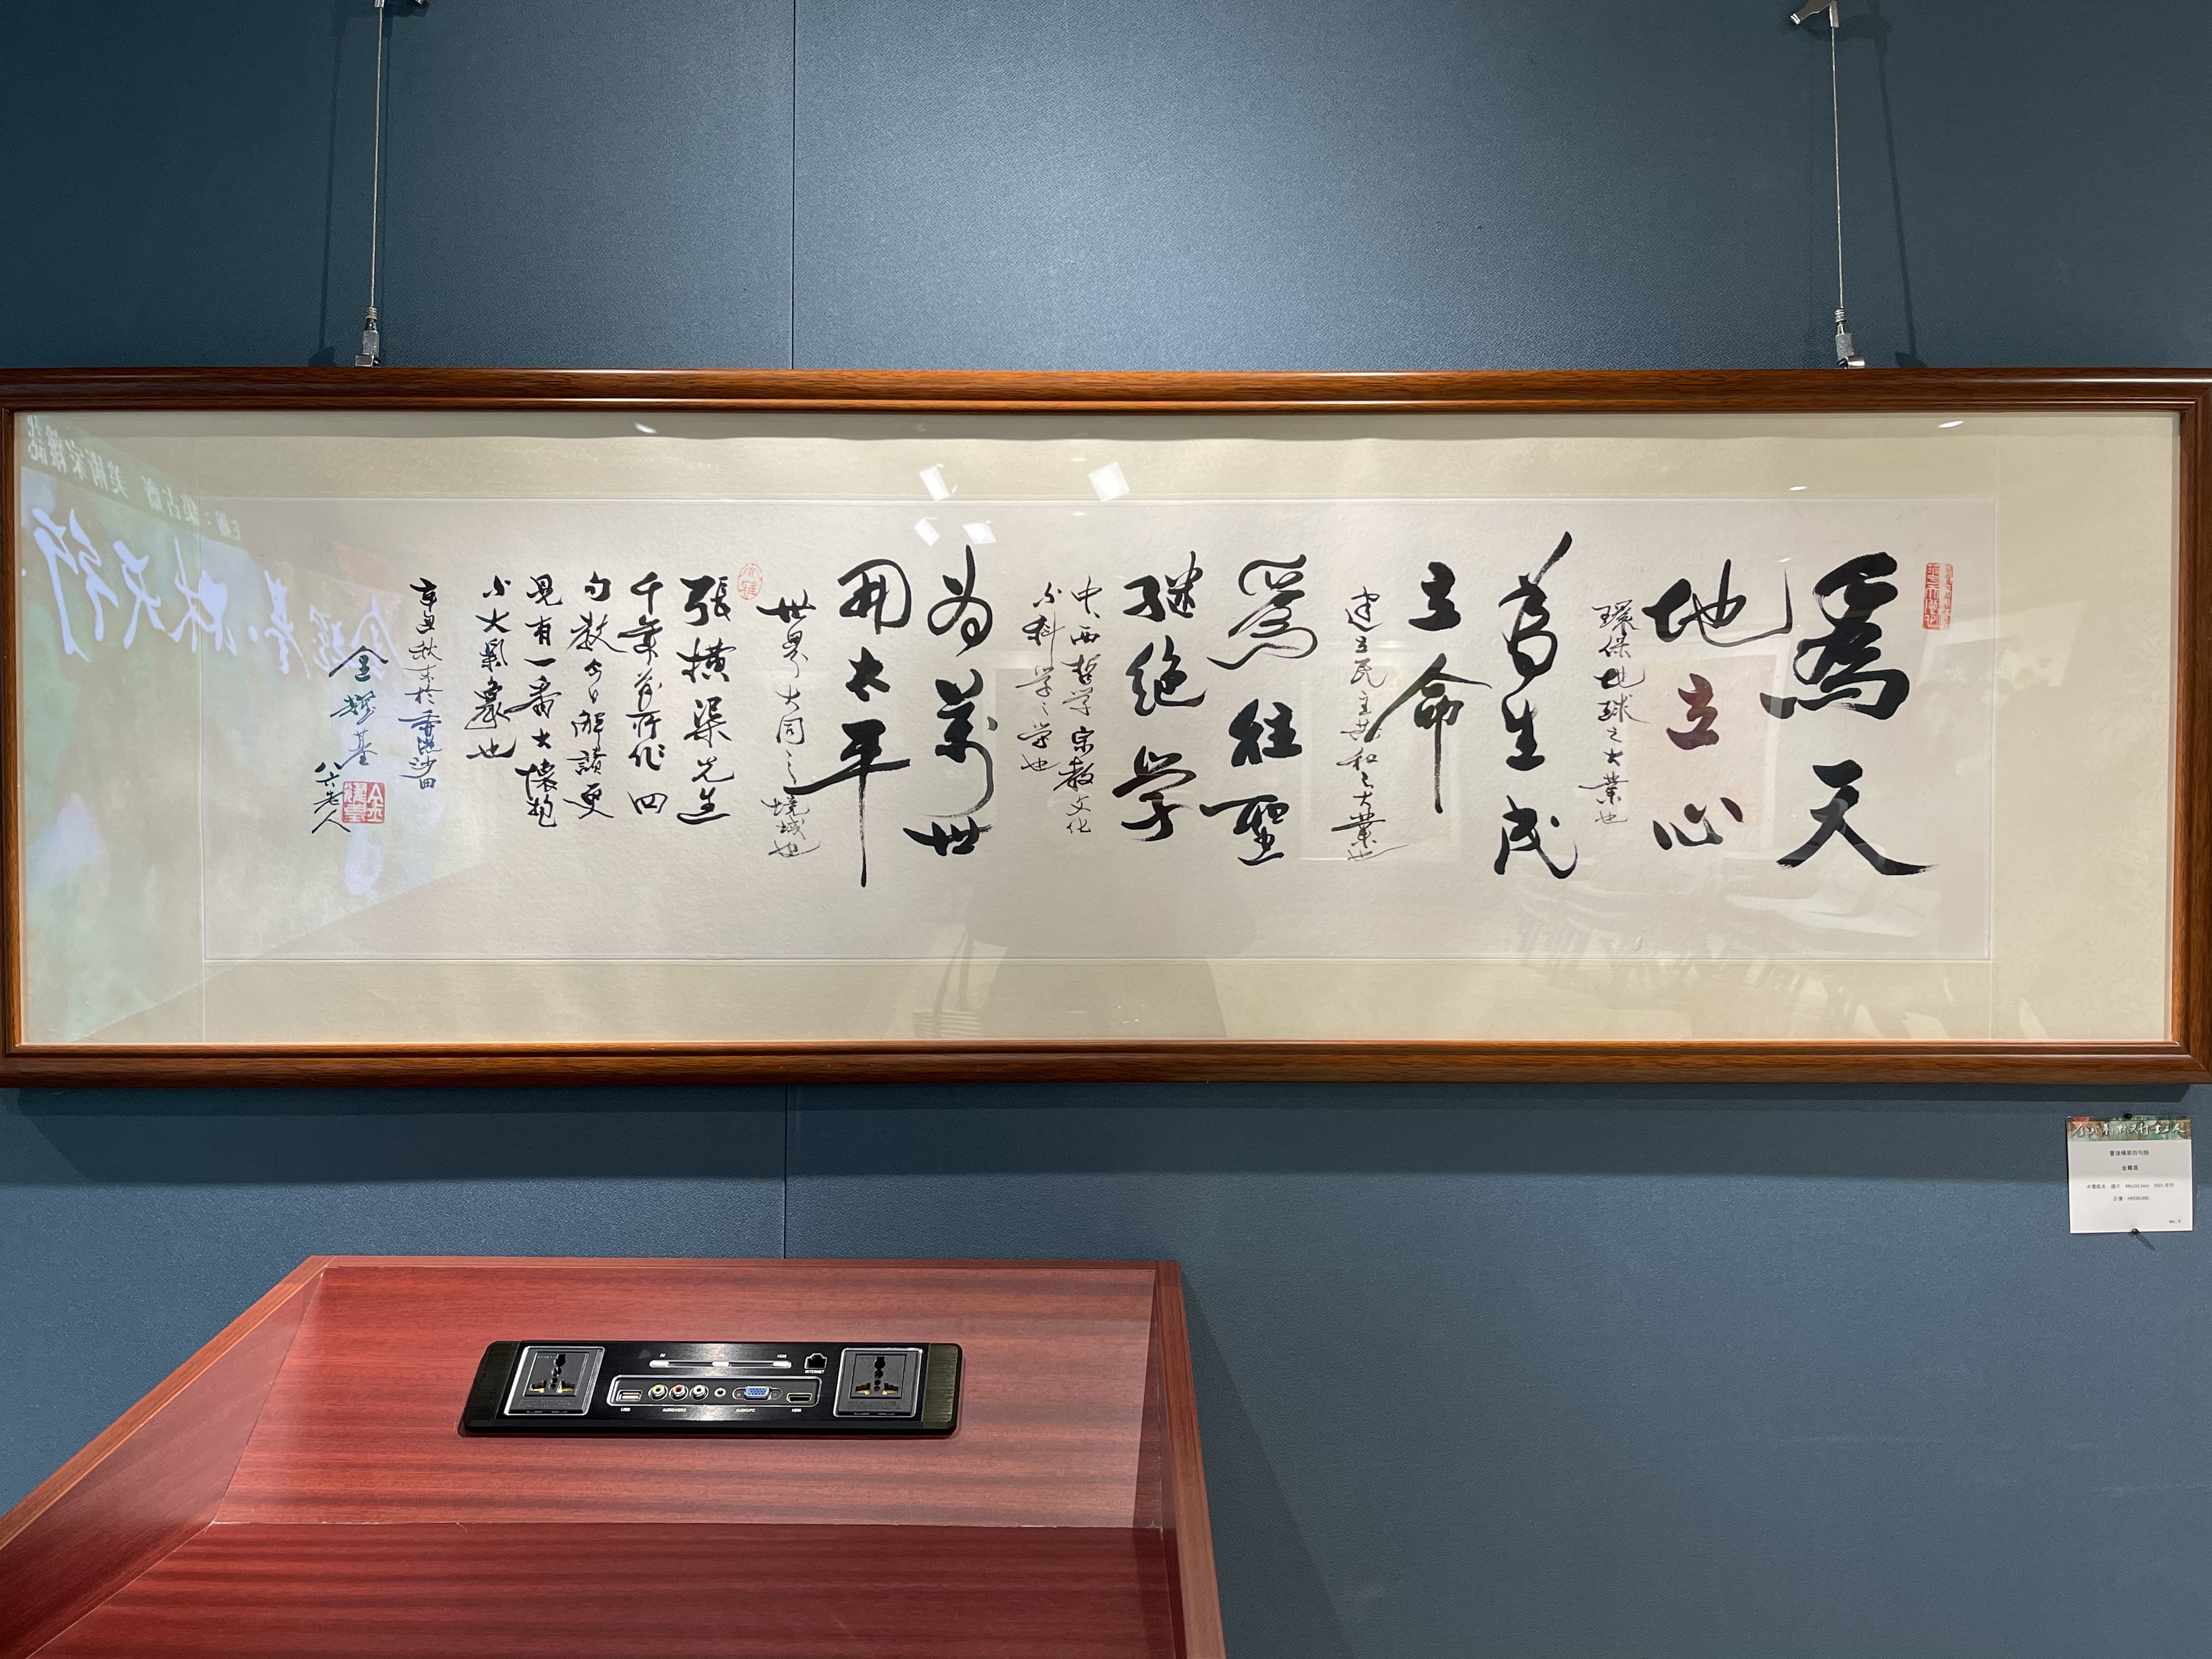 為天
地立心
環保地球之大業也
為生民
立命
建立民主共和之大業也
為往聖
继絕学
中西哲学宗教文化
与科学之学也
为萬世
開太平
世界大同之境域也
張橫渠先生
千年前所作四
句教今日解讀更
見有一番大懷抱
与大氣象也
辛丑秋末於香港沙田
金耀基
八六老人
金耀基
USB
AUDIO/VIDEO
AUDIO/PC
HDMI
INTERNET